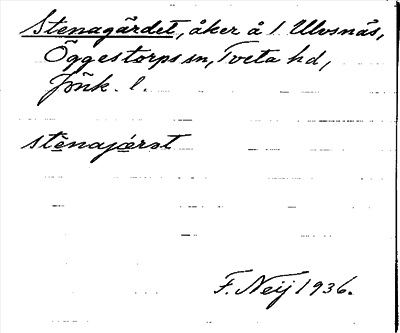 Stenagärdet, åker å 1 Ulvsnäs,
Öggestorps sn, Tveta hd,
Jönk. l.
stènajærət
F. Neij 1936.